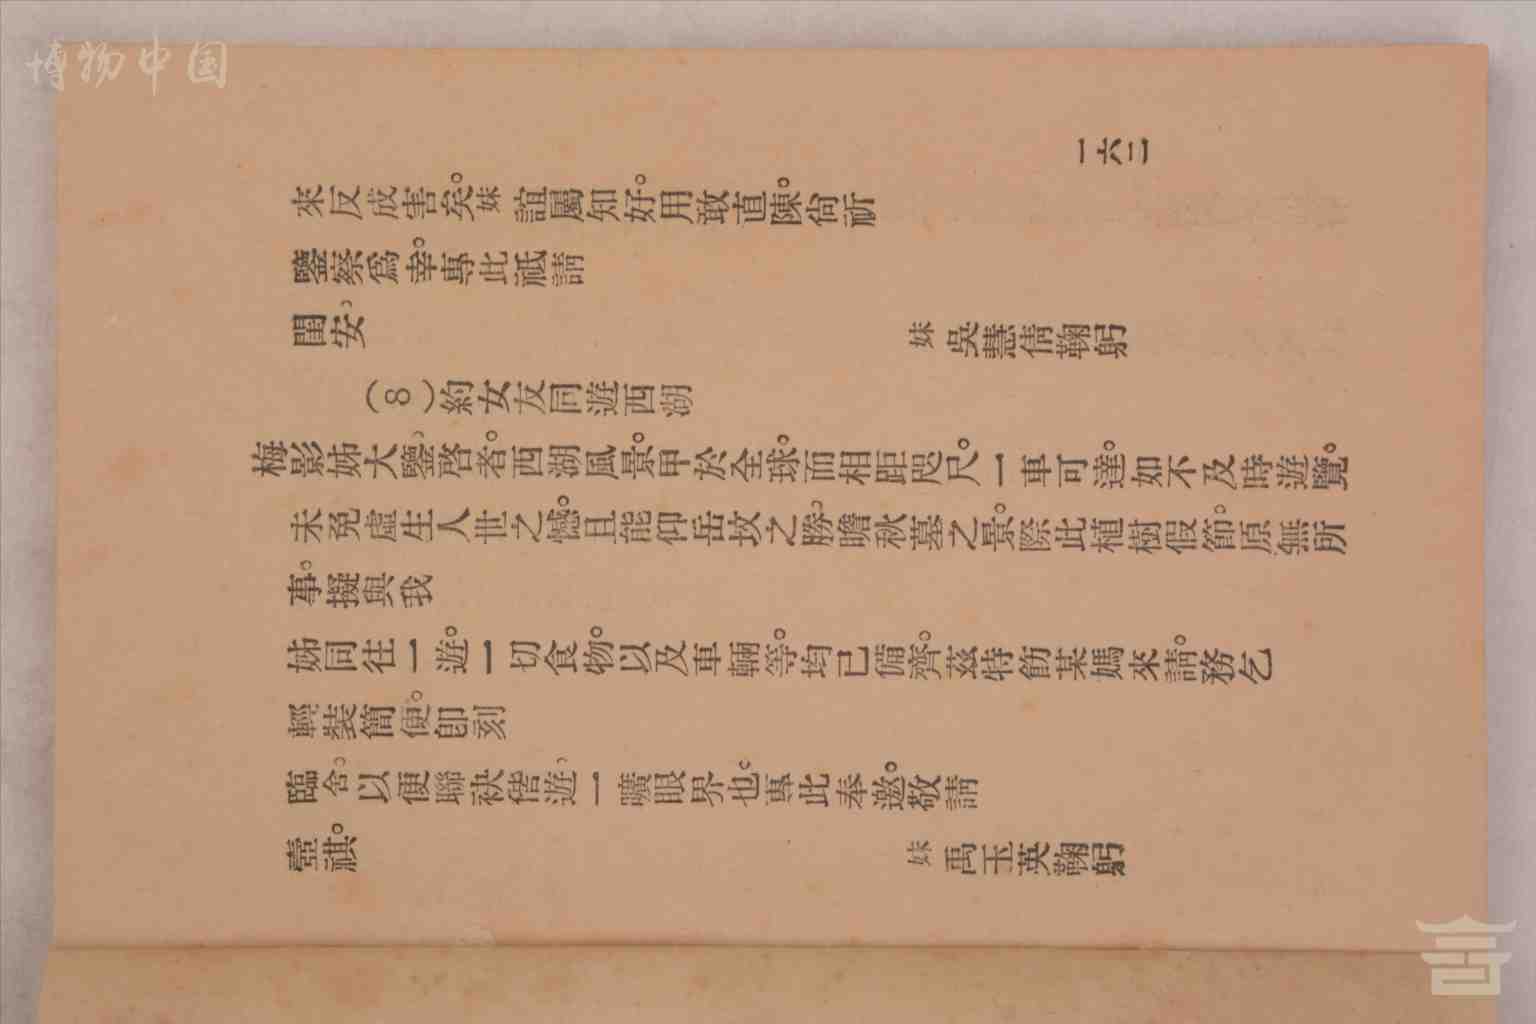 博物中国
一六二
來反成害矣。妹誼屬知好。用敢直陳。尙祈
鑒察爲幸。專此祗請
閨安、
妹吳慧倩鞠躬
(8)約女友同遊西湖
梅影姊大鑒、啓者。西湖風景。甲於全球。而相距咫尺。一車可達。如不及時遊覽。
未免虛生人世之憾。且能仰岳坟之勝、瞻秋墓之景。際此植樹假節。原無所
事。擬與我
姊同往一遊。一切食物。以及車輛等。均已備齊。茲特飭某媽來請。務乞
輕裝簡便。卽刻
臨舍、以便聯袂偕遊、一曠眼界也。專此奉邀。敬請
壼祺。
妹禹玉英鞠躬